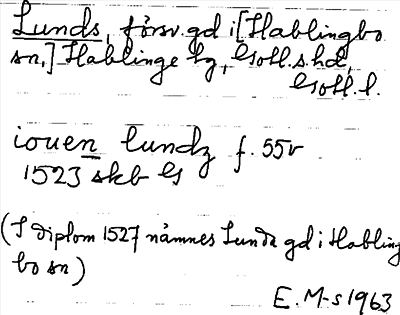 Lunds, försv. gd i [Hablingbo
sn,] Hablinge tg, Gotl. s. hd,
Gotl. l.
iouen lundz f. 55v
1523 skb G
(I diplom 1527 nämnes Lunda gd i Habling
bo sn)
E. M-s 1963